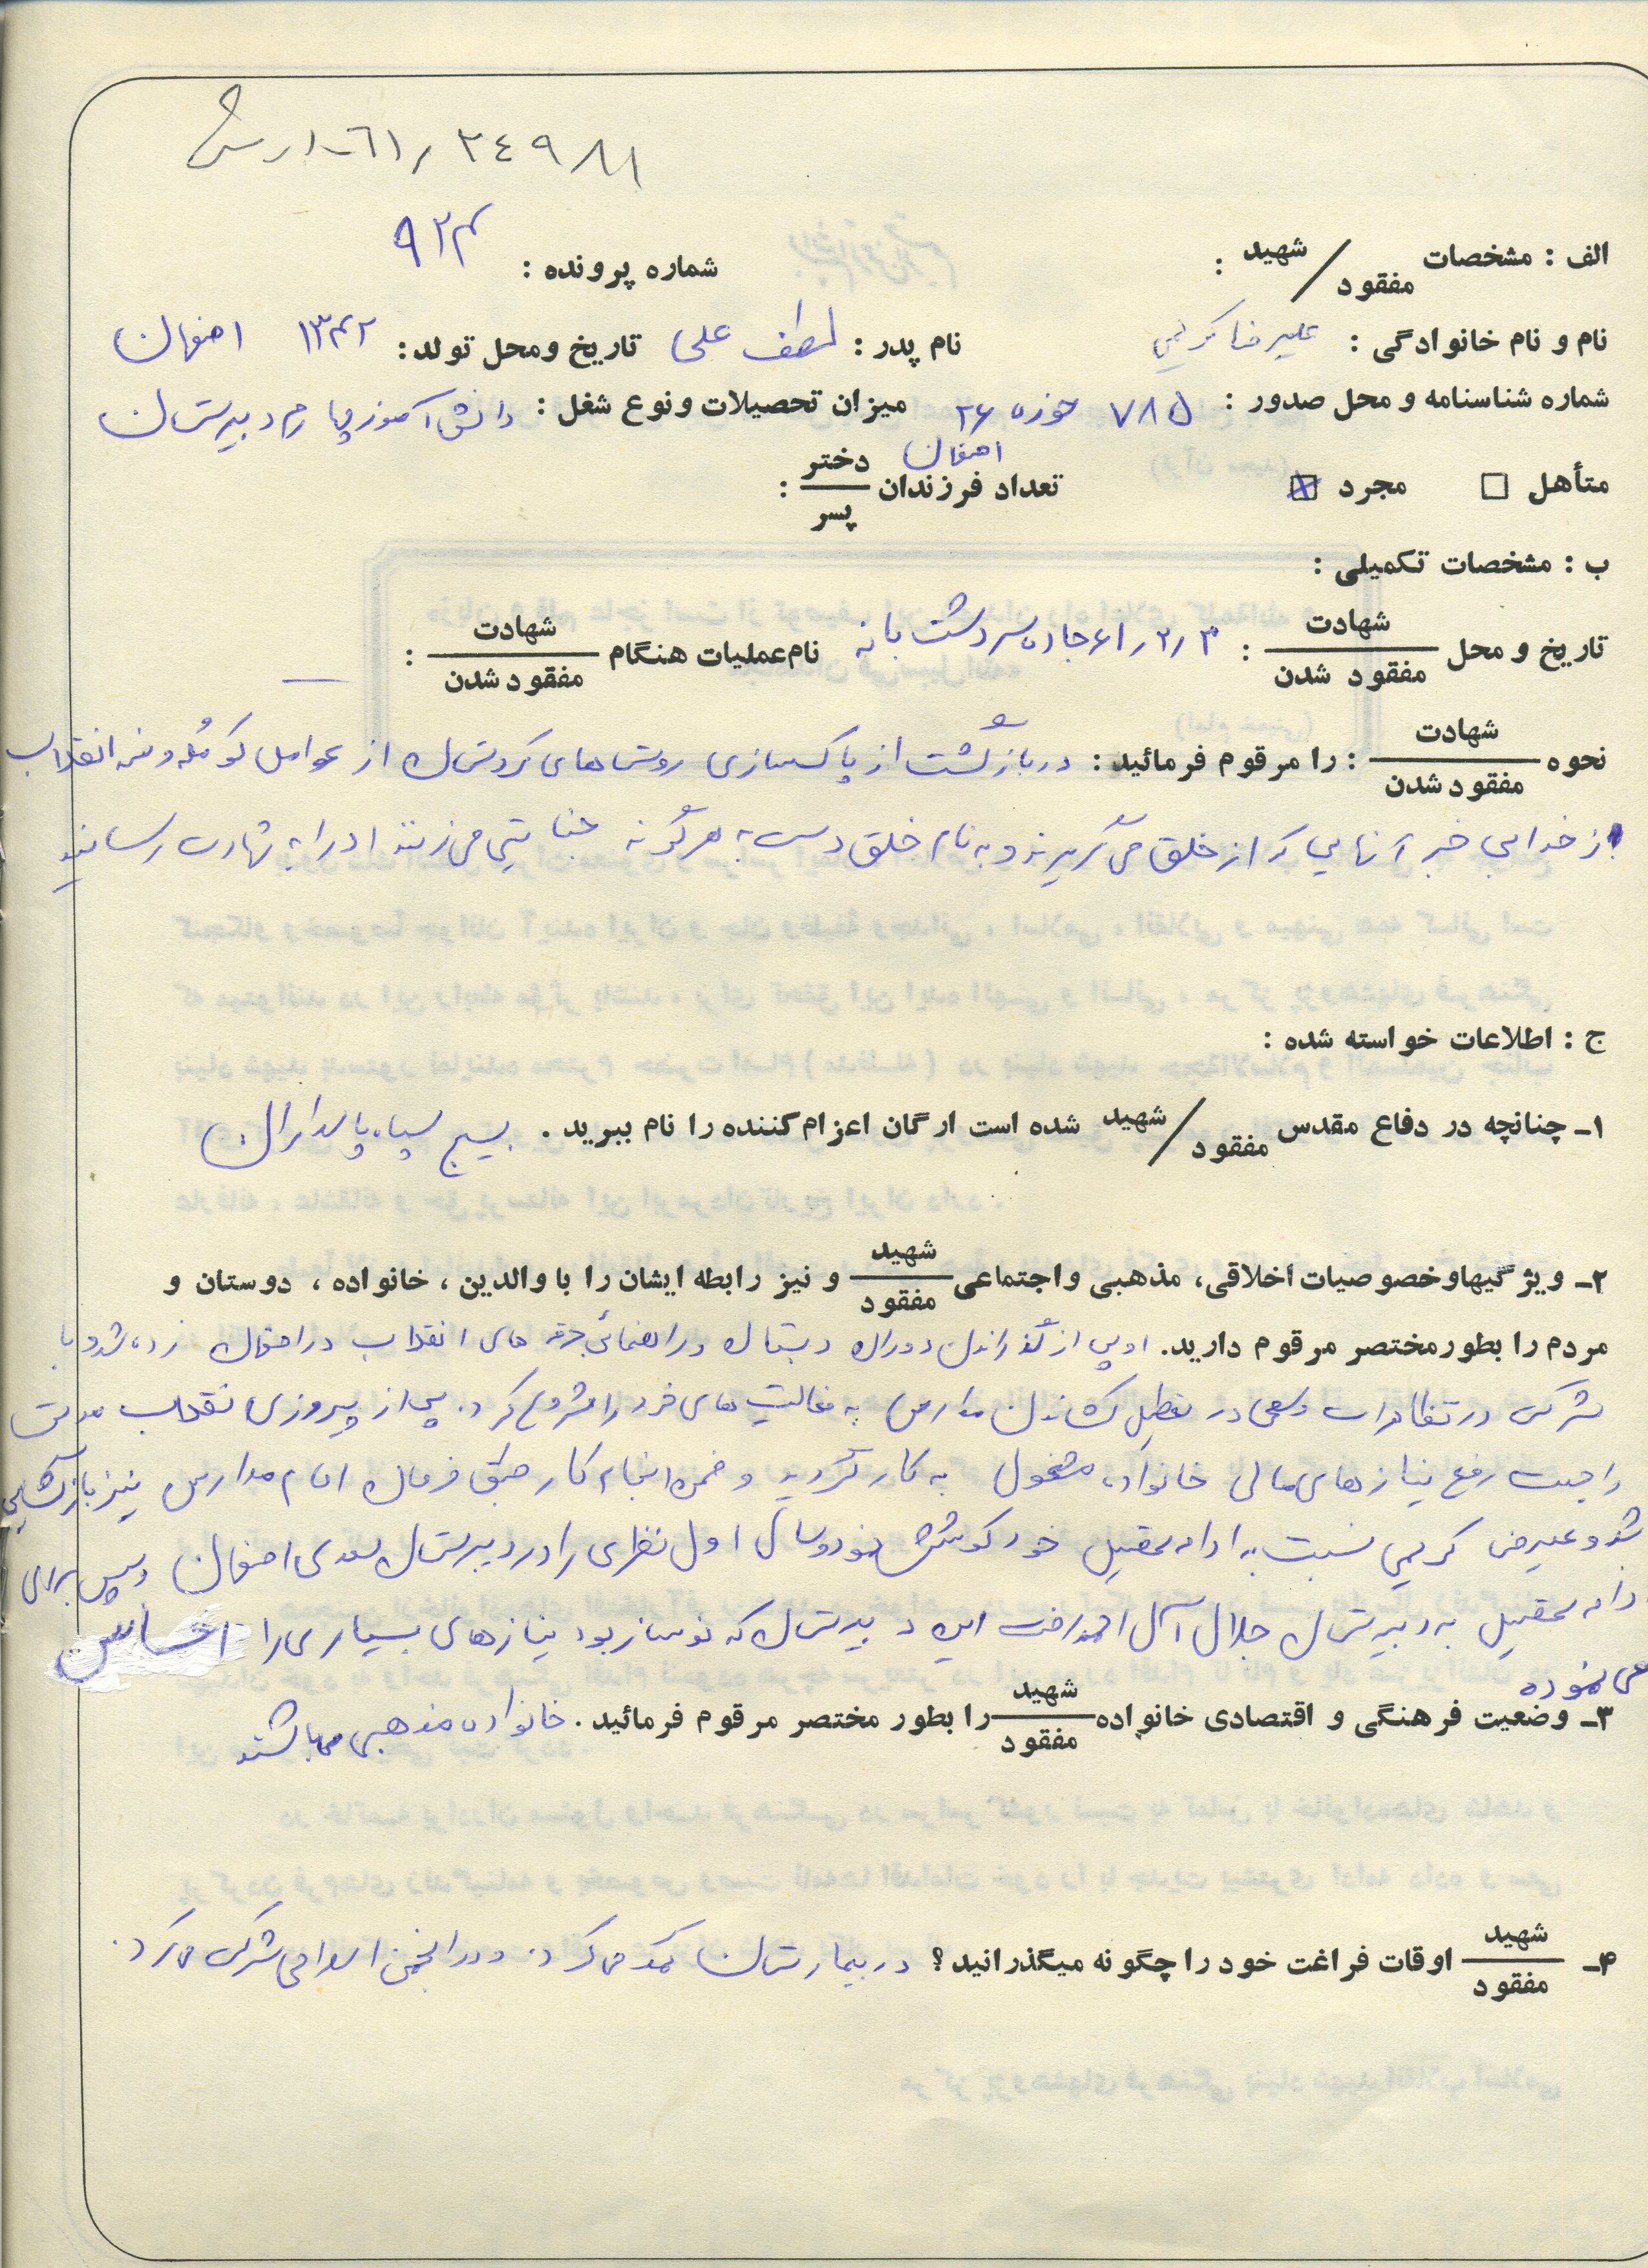 ۶۱/۲۴۹۸۸
الف : مشخصات شهید / مفقود : شماره پرونده : ۹۲۴
نام و نام خانوادگی : علیرضا کریمی نام پدر : لطف علی تاریخ ومحل تولد : ۱۳۴۲ اصفهان
شماره شناسنامه و محل صدور : ۷۸۵ حوزه ۲۶ اصفهان میزان تحصیلات و نوع شغل : دانش آموز چهارم دبیرستان
متأهل ☐ مجرد ☒ تعداد فرزندان دختر / پسر :
ب : مشخصات تکمیلی :
تاریخ و محل شهادت / مفقود شدن : ۶۱/۲/۳ جاده سردشت بانه نام عملیات هنگام شهادت / مفقود شدن : —
نحوه شهادت / مفقود شدن : را مرقوم فرمائید : در بازگشت از پاکسازی روستاهای کردستان از عوامل کومله و ضد انقلاب
از خدا بی خبر آنهایی که از خلق می گریزند و به نام خلق دست به هر گونه جنایتی می زنند او را به شهادت رساندند
ج : اطلاعات خواسته شده :
۱ـ چنانچه در دفاع مقدس شهید / مفقود شده است ارگان اعزام کننده را نام ببرید . بسیج سپاه پاسداران
۲ـ ویژگیها و خصوصیات اخلاقی، مذهبی و اجتماعی شهید / مفقود و نیز رابطه ایشان را با والدین ، خانواده ، دوستان و
مردم را بطور مختصر مرقوم دارید. او پس از گذراندن دوران دبستان و راهنمائی جرقه های انقلاب در اصفهان زده شد و با
شرکت در تظاهرات و سعی در تعطیل کشاندن مدارس به فعالیت های خود را شروع کرد. پس از پیروزی انقلاب مدتی
را جهت رفع نیازهای مالی خانواده مشغول به کار گردید و ضمن انجام کار طبق فرمان امام مدارس نیز بازگشایی
شد و علیرضا کریمی نسبت به ادامه تحصیل خود کوشش نمود و سال اول نظری را در دبیرستان سعدی اصفهان و سپس برای
ادامه تحصیل به دبیرستان جلال آل احمد رفت این دبیرستان که نوساز بود نیازهای بسیاری را احساس
می نموده
۳ـ وضعیت فرهنگی و اقتصادی خانواده شهید / مفقود را بطور مختصر مرقوم فرمائید . خانواده مذهبی می باشند
۴ـ شهید / مفقود اوقات فراغت خود را چگونه میگذرانید ؟ در بیمارستان کمک می کرد. و در انجمن اسلامی شرکت می کرد.